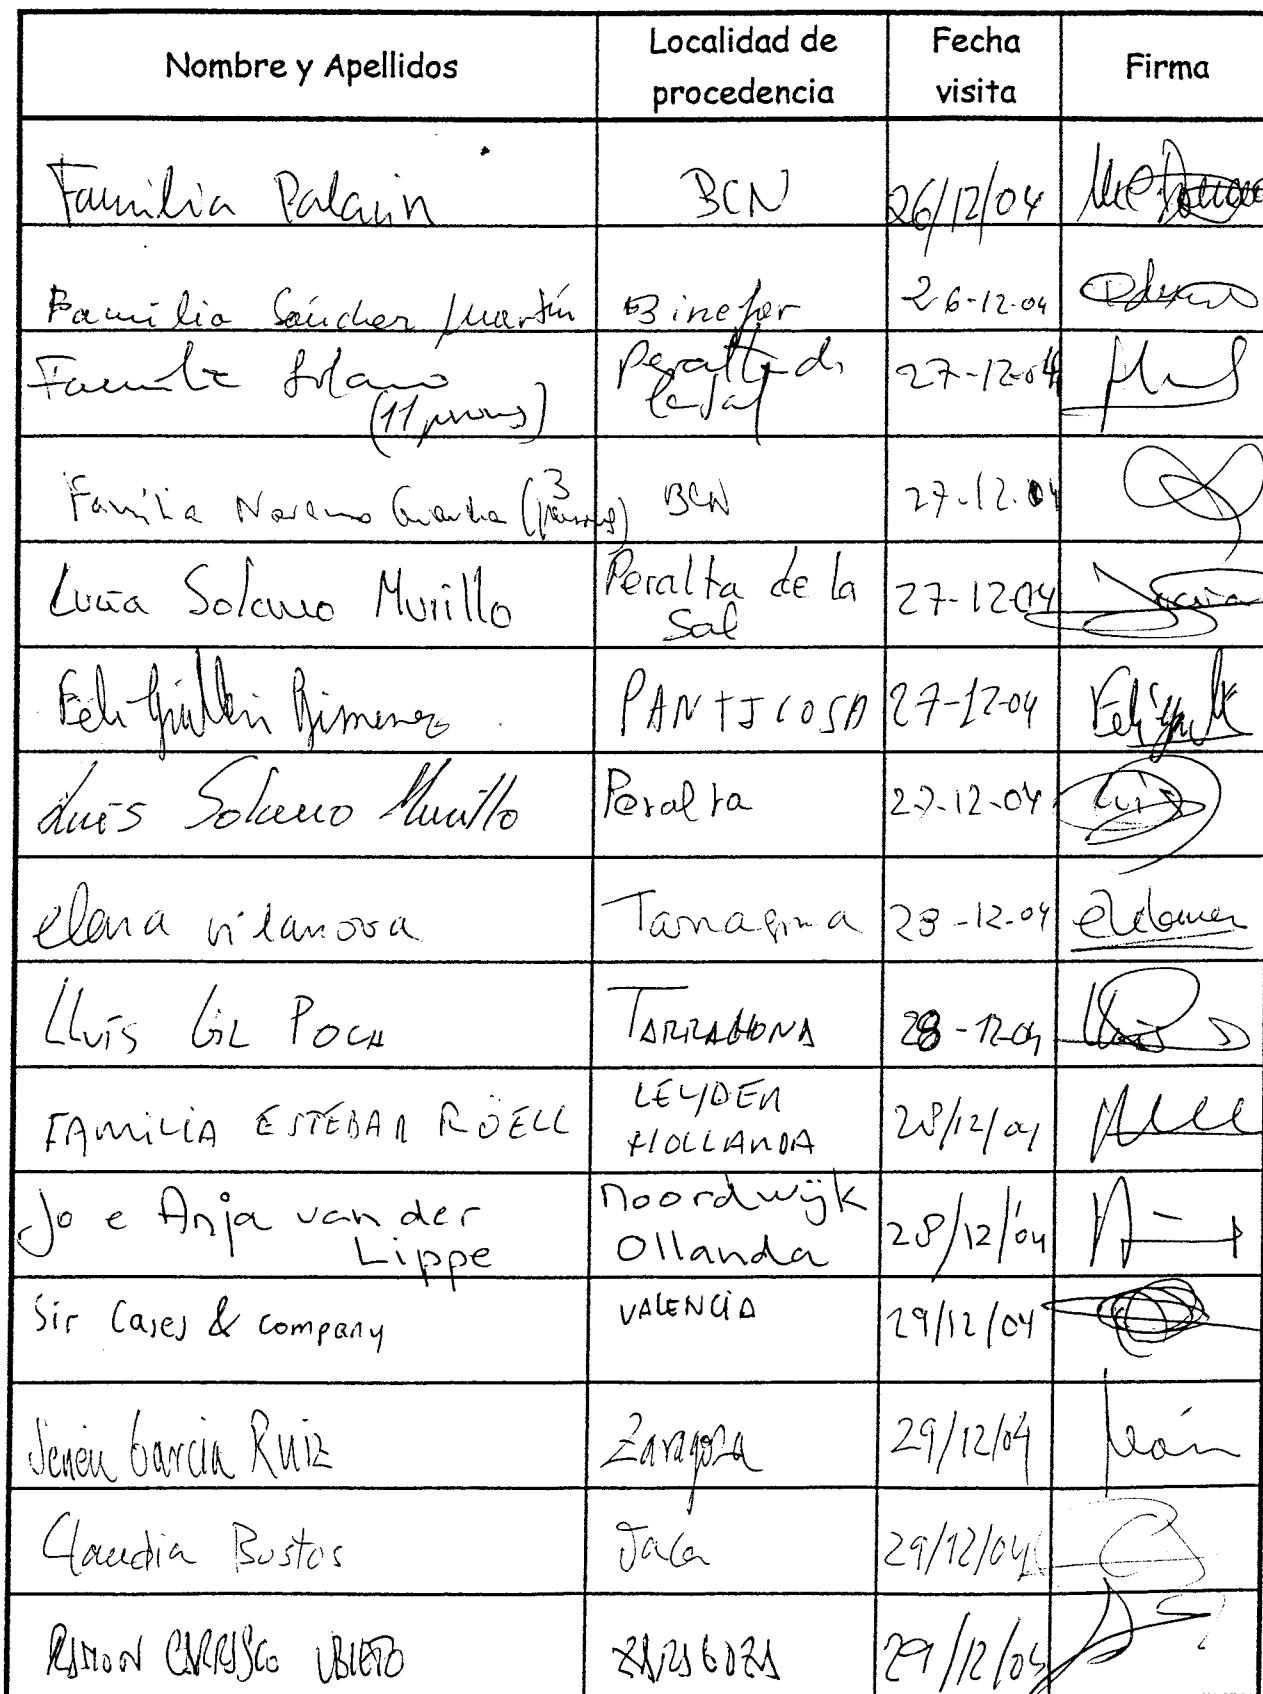 Nombre y Apellidos
Localidad de
procedencia
Fecha
visita
Firma
Familia Palacin
BCN
26/12/04
Familia Sánchez Martín
Binefar
26-12-04
Familia Solano
(11 )
Peralta de
la Sal
27-12-04
Familia (3
BCN
27-12-04
Lucía Solano Murillo
Peralta de la
Sal
27-12-04
Lucía
Feli Guillén Gimenez
PANTICOSA
27-12-04
Luis Solano Murillo
Peralta
27-12-04
Luis
elena vilanova
Tarragona
28-12-04
Lluís GIL POCA
TARRAGONA
28-12-04
FAMILIA ESTEBAN RÖELL
LEYDEN
HOLLANDA
28/12/04
Jo e Anja van der
Lippe
Noordwijk
Ollanda
28/12/'04
Sir Cases & company
VALENCIA
29/12/04
García Ruiz
Zaragoza
29/12/04
Claudia Bustos
Jaca
29/12/04
RAMON CARRASCO UBIETO
ZARAGOZA
29/12/04